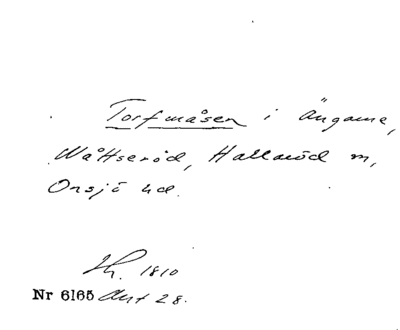 Torfmåsen i Ängarne,
Wåttseröd, Hallaröd m,
Onsjö hd.
Lh. 1810
Nr 6165 Akt 28.